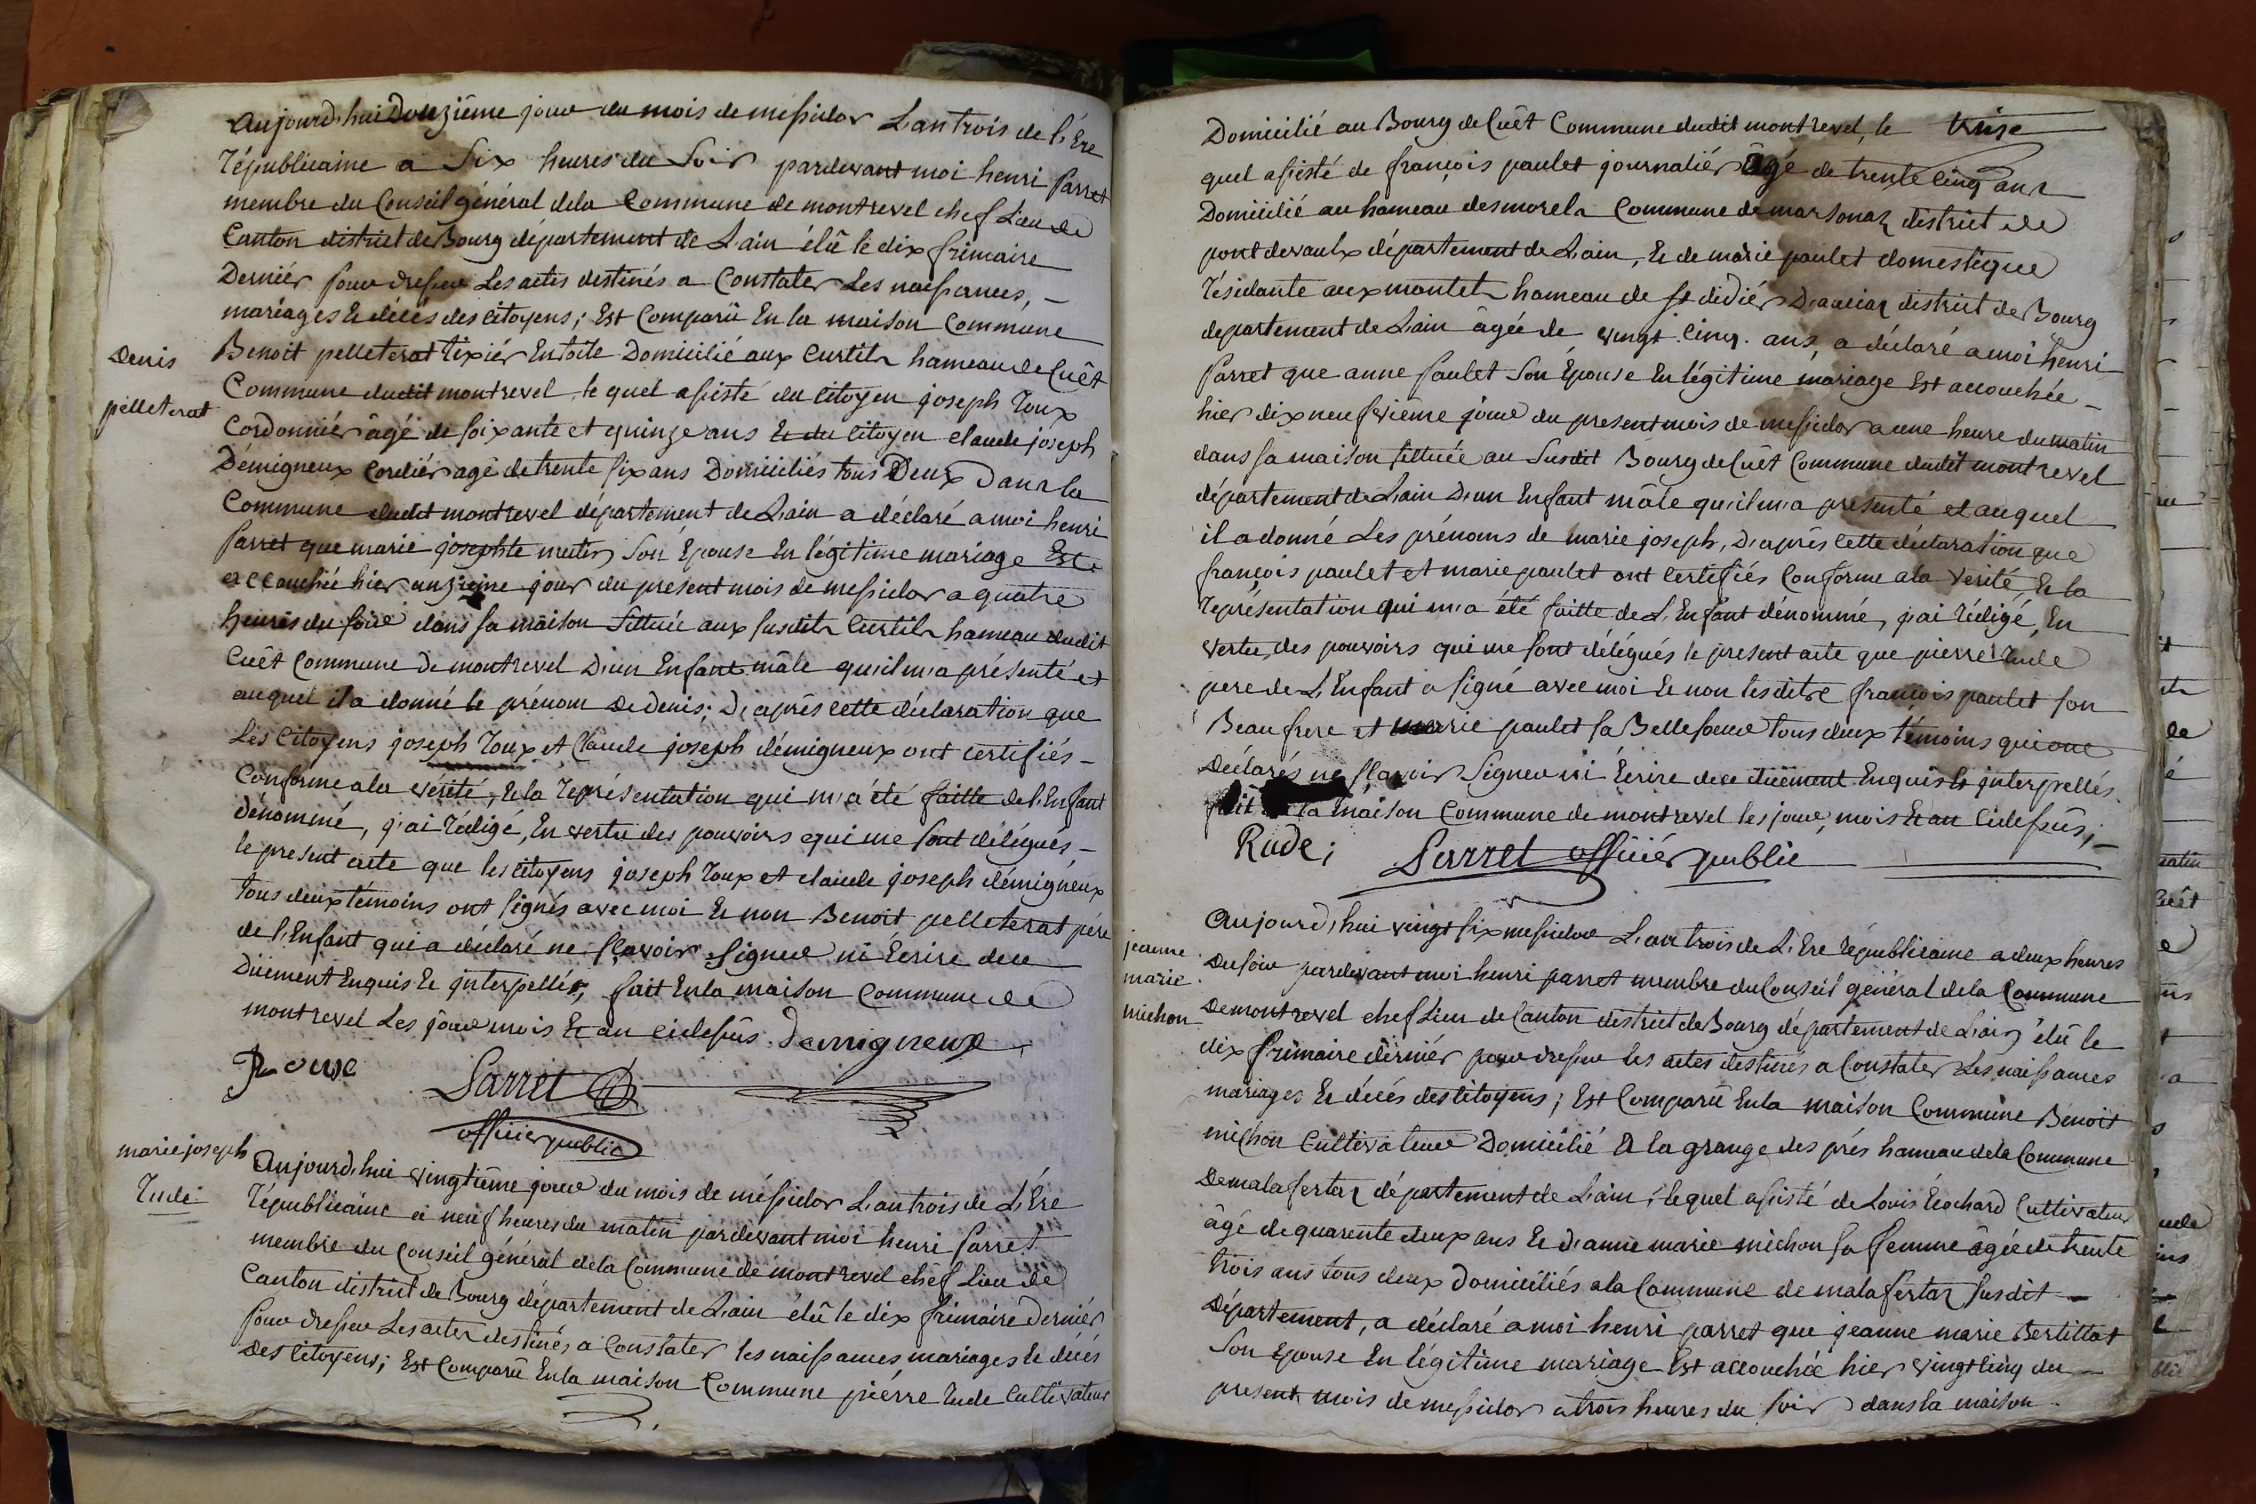 Aujourd'hui Douziême jour du mois de messidor L'an trois de l'Ere
républicaine a Six heures du Soir pardevant moi henri parret
membre du Conseil général dela Commune de montrevel chef Lieu de
Canton district de Bourg département de L'ain élû le dix frimaire
Derniér pour dresser Les actes destinés a Constater Les naissances, –
mariages Et décès des citoyens; Est Comparû En la maison Commune
Denis
pelleterat
Benoit pelleterat tixiér En toile Domicilié aux Curtils hameau de Cuêt
Commune dudit montrevel, le quel assisté du citoyen joseph roux
Cordonniér âgé de soixante et quinze ans Et du citoyen claude joseph
Démigneux Cordiér agé de trente six ans Domiciliés tous Deux Dans la
Commune dudit montrevel département de L'ain a déclaré a moi henri
parret que marie josephte Son Epouse En légitime mariage Est
accouchée hier onzième jour du present mois de messidor a quatre
heures du soir dans sa maison Sittuée aux susdits Curtils hameau dudit
Cuêt Commune de montrevel D'un Enfant mâle qu'il m'a présenté et
auquel il a donné le prénom De denis; D'après cette déclaration que
Les Citoyens joseph roux et Claude joseph démigneux ont certifiés –
Conforme ala vérité, Et la représentation qui m'a été faitte de l'Enfant
dénommé, j'ai rédigé, En vertu des pouvoirs qui me sont délégués –
le present acte que les citoyens joseph roux et claude joseph démigneux
tous deux témoins ont signés avec moi Et non Benoit pelleterat pére
de l'Enfant qui a déclaré ne sçavoir signer ni Ecrire de ce
Dûement Enquis Et interpellés, fait En la maison Commune de
montrevel Les jour mois Et an cidessûs. Demigneux
Parret
officier public
marie joseph
rude
Aujourd'hui vingtiême jour du mois de méssidor L'an trois de L'Ere
républicaine à neuf heures du matin pardevant moi henri parret
membre du Conseil général dela Commune de montrevel chef Lieu de
Canton district de Bourg département de L'ain élû le dix frimaire Derniér
pour dresser Les actes destinés a Constater les naissances mariages Et décés
Des Citoyens; Est Comparû En la maison Commune piérre rude Cultivateur
treize
Domicilié au Bourg de Cuêt Commune dudit montrevel, le
quel assisté de françois paulet journaliér âgé de trente cinq ans
Domicilié au hameau des morels Commune de marsonas district de
pont devaulx département de L'ain, Et de marie paulet domestique
résidante aux montets hameau de st didiér D'aussiaz district de Bourg
departement de L'ain âgée de vingt. cinq. ans, a déclaré a moi henri
parret que anne paulet Son Epouse En légitime mariage Est accouchée –
hier dix neufvième jour du present mois de messidor a une heure du matin
dans sa maison sittuée au Susdit Bourg de Cuêt Commune dudit montrevel
département de L'ain D'un Enfant mâle qu'il m'a presenté et auquel
il a donné Les prénoms de marie joseph, D'après cette déclaration que
françois paulet et marie paulet ont certifiés Conforme ala vérité, Et la
représentation qui m'a été faitte de L'Enfant dénommé, j'ai rédigé, En
vertu des pouvoirs qui me sont délégués le present acte que pierre rude
pere de L'Enfant a signé avec moi Et non lesdits françois paulet son
Beau frere et marie paulet sa Belle soeur tous deux témoins qui ont
Déclarés ne sçavoir Signer ni Ecrire de ce dûement Enquis Et interpellés.
fait la maison Commune de montrevel les jour, mois Et an Cidessûs, –
Rude; Parret officiér public
jeanne
marie
michon
Aujourd'hui vingt six messidor L'an trois de L'Ere républicaine a deux heures
Du soir pardevant moi henri parret membre du Conseil général dela Commune
De montrevel chef Lieu de Canton district de Bourg département de L'ain élû le
dix frimaire derniér pour dresser les actes destinés a Constater Les naissances
mariages Et décés des citoyens; Est Comparû En la maison Commune Benoit
michon Cultivateur Domicilié A la grange des prés hameau dela Commune
De malafertaz département de L'ain; lequel assisté de Louis Cultivateur
âgé de quarente deux ans Et D'anne marie michon sa femme âgée de trente
trois ans tous deux Domiciliés a la Commune de malafertaz susdit –
Département, a déclaré a moi henri parret que jeanne marie Bertillot
Son Epouse En légitime mariage Est accouchée hier vingt cinq du –
present mois de messidor a trois heures du soir dans la maison